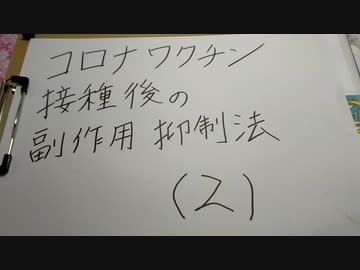 コロナワクチン
接種後の
副作用抑制法
(2)